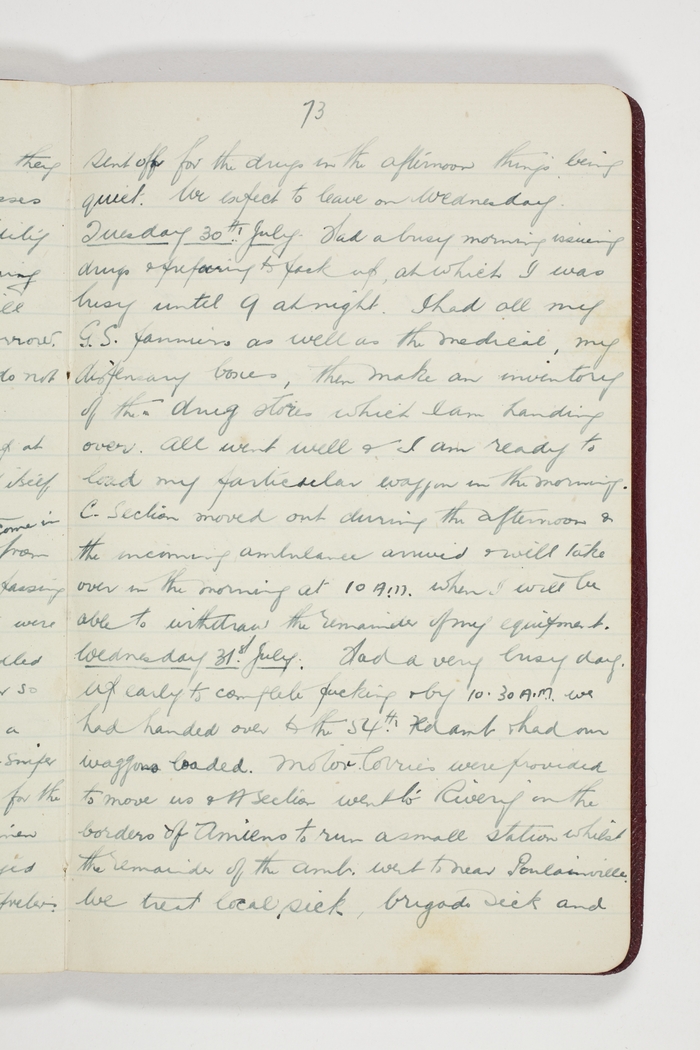 73
they
sses
ility
ing
ill
rrow.
do not
at
itself
come in
from
passing
were
dled
r so
a
Sniper
for the
men
sent off for the drugs in the afternoon things being
quiet. We expect to leave on Wednesday.
Tuesday 30th July. Had a busy morning issuing
drugs & preparing to pack up, at which I was
busy until 9 at night. I had all my
G.S. panniers as well as the medical, my
dispensary boxes, then make an inventory
of the drug stores which I am handing
over. All went well & I am ready to
load my particular waggon in the morning.
C. Section moved out during the afternoon &
the incoming ambulance arrived & will take
over in the morning at 10 A.M. when I will be
able to withdraw the remainder of my equipment.
Wednesday 31st July. Had a very busy day.
up early to complete packing & by 10.30 A.M. we
had handed over to the 54th Fd amb & had our
waggons loaded. Motor lorries were provided
to move us & A Section went to Rivery on the
borders of Amiens to run a small station whilst
the remainder of the amb. went to near Poulainville.
We treat local sick, brigade sick and